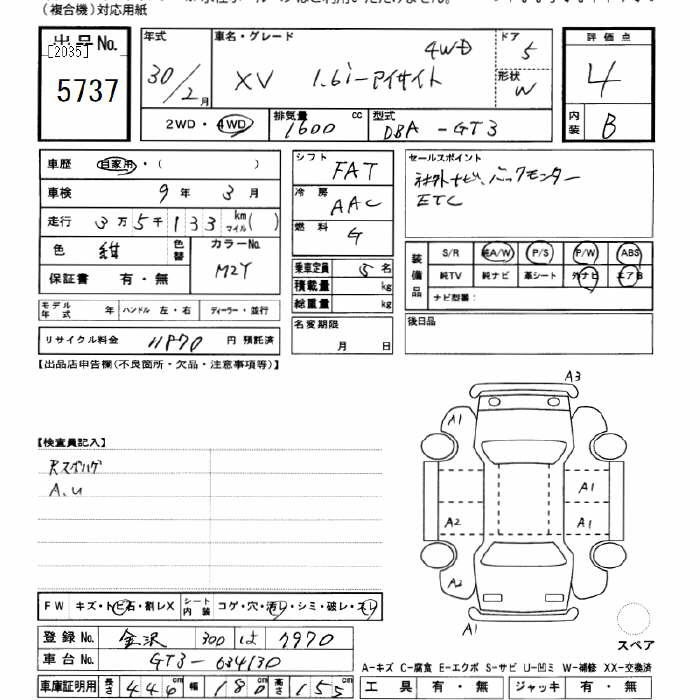 (複合機)対応用紙
出品No.
[2035]
5737
年式
30/2月
車名・グレード
XV 1.6i-アイサイト 4WD
ドア
5
形状
W
2WD・4WD
排気量
1600 cc
型式
DBA-GT3
評価点
4
内装
B
車歴 自家用・( )
車検 9年 3月
走行 3万5千133 km マイル( )
色 紺
色替
カラーNo.
M2Y
保証書 有・無
モデル年式 年 ハンドル 左・右 ディーラー・並行
リサイクル料金 11970 円 預託済
シフト FAT
冷房 AAC
燃料 G
乗車定員 5名
積載量 kg
総重量 kg
名変期限
月 日
セールスポイント
社外ナビ、バックモニター
ETC
装備品
S/R 純A/W P/S P/W ABS
純TV 純ナビ 革シート 外ナビ エアB
ナビ型番:
後日品
【出品店申告欄(不良箇所・欠品・注意事項等)】
【検査員記入】
A,U
A3
A1
A1
A2
A1
A2
A1
スペア
FW キズ・トビ石・割レX シート内装 コゲ・穴・汚レ・シミ・破レ・スレ
登録No. 金沢 300 は 7970
車台No. GT3-034130
車庫証明用 長さ 446cm 幅 180cm 高さ 155cm
A-キズ C-腐食 E-エクボ S-サビ U-凹ミ W-補修 XX-交換済
工具 有・無 ジャッキ 有・無